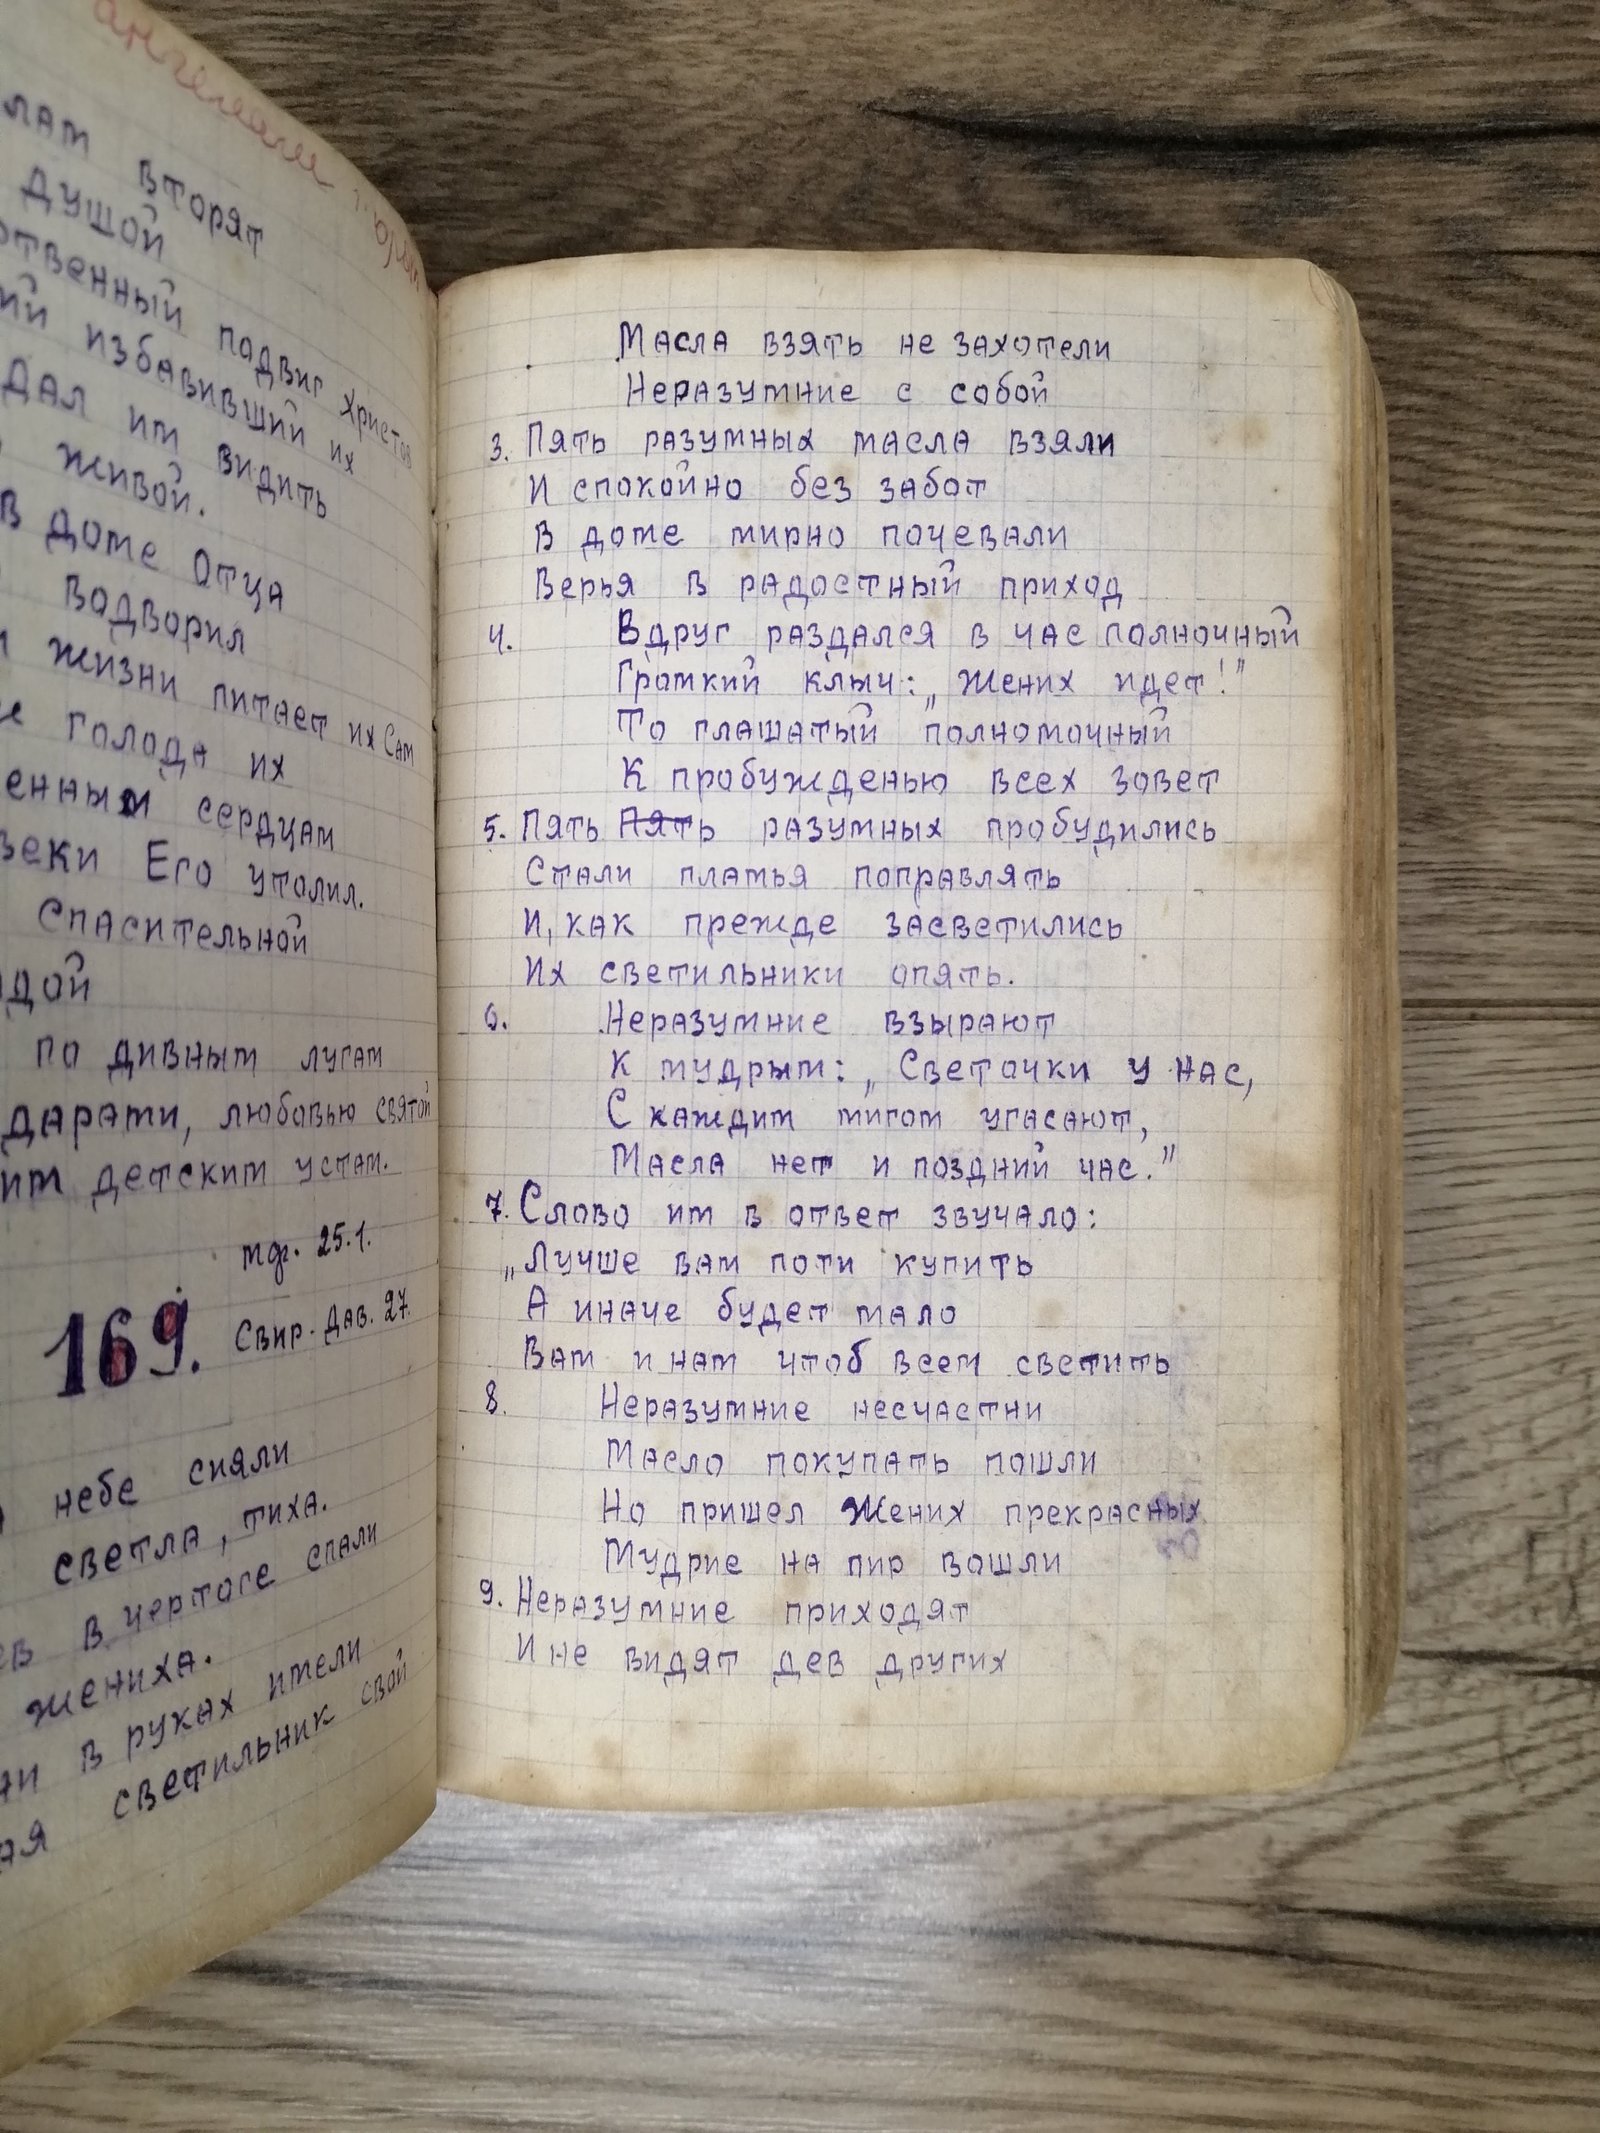 ангелами
лам вторят
душой
ственный подвиг Христов
ий избавивший их
дал им видить
живой.
в доме Отца
водворил
жизни питает их Сам
голода их
енным сердцам
веки Его утолил.
Спасительной
дой
по дивным лугам
дарами, любовью святой
им детским устам.
мф. 25.1.
169. Свир. Дав. 27.
небе сияли
светла, тиха.
в чертоге спали
жениха.
в руках имели
светильник свой
Масла взять не захотели
Неразумние с собой
3. Пять разумных масла взяли
И спокойно без забот
В доме мирно почевали
Верья в радостный приход
4. Вдруг раздался в час полночный
Громкий клыч: „Жених идет!"
То глашатый полномочный
К пробужденью всех зовет
5. Пять Пять разумных пробудились
Стали платья поправлять
И, как прежде засветились
Их светильники опять.
6. Неразумние взырают
К мудрым: „Светочки у нас,
С каждим мигом угасают,
Масла нет и поздний час."
7. Слово им в ответ звучало:
„Лучше вам поти купить
А иначе будет мало
Вам и нам чтоб всем светить
8. Неразумние несчастни
Масло покупать пошли
Но пришел Жених прекрасных
Мудрие на пир вошли
9. Неразумние приходят
И не видят дев других